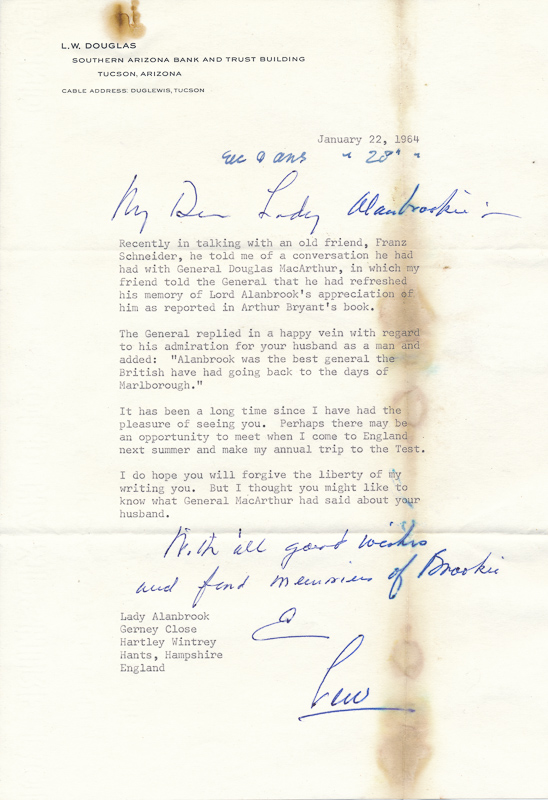 L.W. DOUGLAS
SOUTHERN ARIZONA BANK AND TRUST BUILDING
TUCSON, ARIZONA
CABLE ADDRESS: DUGLEWIS, TUCSON
January 22, 1964
ans "28"
My Dear Lady Alanbrooke :-
Recently in talking with an old friend, Franz
Schneider, he told me of a conversation he had
had with General Douglas MacArthur, in which my
friend told the General that he had refreshed
his memory of Lord Alanbrook's appreciation of
him as reported in Arthur Bryant's book.
The General replied in a happy vein with regard
to his admiration for your husband as a man and
added: "Alanbrook was the best general the
British have had going back to the days of
Marlborough."
It has been a long time since I have had the
pleasure of seeing you. Perhaps there may be
an opportunity to meet when I come to England
next summer and make my annual trip to the Test.
I do hope you will forgive the liberty of my
writing you. But I thought you might like to
know what General MacArthur had said about your
husband.
With all good wishes
and fond memories of Brookie
Lew
Lady Alanbrook
Gerney Close
Hartley Wintrey
Hants, Hampshire
England